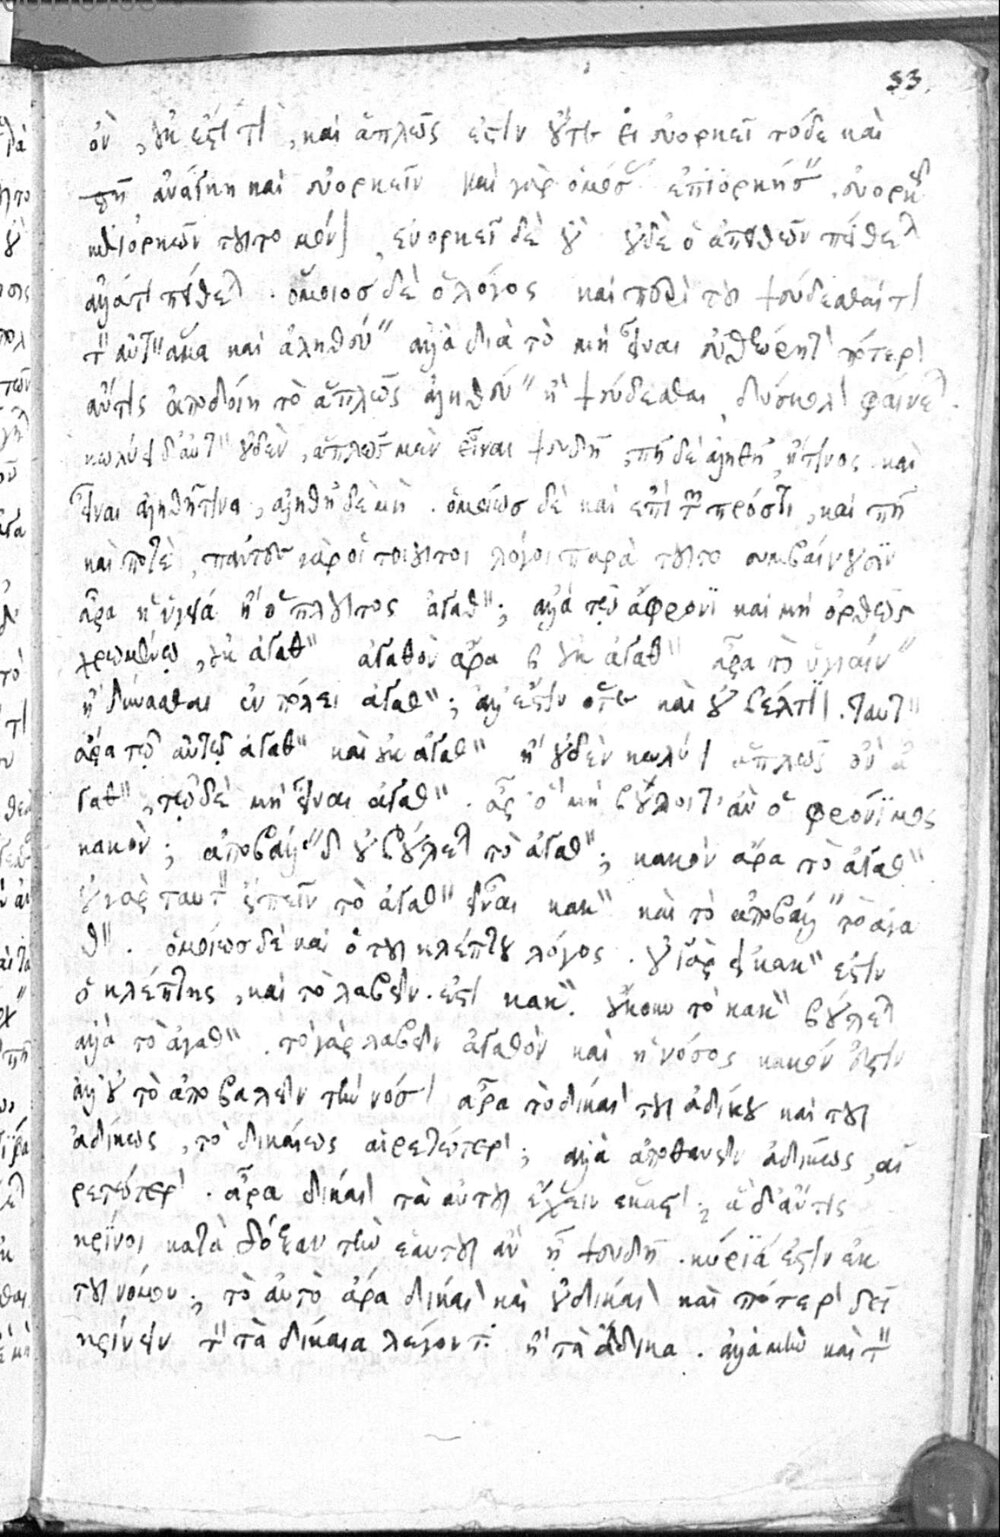 33.
ὂν, οὐκ ἔστι τι, καὶ ἁπλῶς ἐστὶν οὔτε εἰ εὐορκεῖ τόδε καὶ
πῆ ἀνάγκη καὶ εὐορκεῖν καὶ γὰρ ὀμόσας ἐπιορκήσειν, εὐορκεῖ
ἐπιορκῶν τοῦτο μόνον, εὐορκεῖ δὲ οὔ οὐδὲ ὁ ἀπειθῶν πείθεται
ἀλλά τι πείθεται. ὅμοιος δὲ ὁ λόγος καὶ περὶ τοῦ ψεύδεσθαί τι
τὸν αὐτὸν ἅμα καὶ ἀληθεύειν ἀλλὰ διὰ τὸ μὴ εἶναι εὐθεώρητον πότερον
ἄν τις ἀποδοίη τὸ ἁπλῶς ἀληθεύειν ἢ ψεύδεσθαι δύσκολον φαίνεται.
κωλύει δ' αὐτὸν οὐδὲν, ἁπλῶς μὲν εἶναι ψευδῆ, πῆ δὲ ἀληθῆ, ἤ τινος. καὶ
εἶναι ἀληθῆ τινα, ἀληθῆ δὲ μή. ὁμοίως δὲ καὶ ἐπὶ τῶν πρός τι, καὶ πῆ
καὶ ποτὲ, πάντες γὰρ οἱ τοιοῦτοι λόγοι παρὰ τοῦτο συμβαίνουσιν
ἆρα ἡ ὑγεία ἢ ὁ πλοῦτος ἀγαθὸν; ἀλλὰ τῷ ἄφρονι καὶ μὴ ὀρθῶς
χρωμένῳ, οὐκ ἀγαθὸν ἀγαθὸν ἄρα καὶ οὐκ ἀγαθὸν ἆρα τὸ ὑγιαίνειν
ἢ δύνασθαι ἐν πόλει ἀγαθὸν; ἀλλ' ἔστιν ὅτε καὶ οὐ βέλτιον. ταυτὸν
ἄρα τῷ αὐτῷ ἀγαθὸν καὶ οὐκ ἀγαθὸν ἢ οὐδὲν κωλύει ἁπλῶς ὂν ἀ
γαθὸν, τῷδε μὴ εἶναι ἀγαθὸν. ἆρ' ὃ μὴ βούλοιτ' ἂν ὁ φρόνιμος
κακὸν; ἀποβαλεῖν δ' οὐ βούλεται τὸ ἀγαθὸν; κακὸν ἄρα τὸ ἀγαθὸν
οὐ γὰρ ταυτὸν εἰπεῖν τὸ ἀγαθὸν εἶναι κακὸν καὶ τὸ ἀποβαλεῖν τὸ ἀγα
θὸν. ὁμοίως δὲ καὶ ὁ τοῦ κλέπτου λόγος. οὐ γὰρ εἰ κακὸν ἐστὶν
ὁ κλέπτης, καὶ τὸ λαβεῖν. ἐστὶ κακὸν. οὔκουν τὸ κακὸν βούλεται
ἀλλὰ τὸ ἀγαθὸν. τὸ γὰρ λαβεῖν ἀγαθὸν καὶ ἡ νόσος κακόν ἐστιν
ἀλλ' οὐ τὸ ἀποβαλεῖν τὴν νόσον ἆρα τὸ δίκαιον τοῦ ἀδίκου καὶ τοῦ
ἀδίκως, τὸ δικαίως αἱρετώτερον; ἀλλὰ ἀποθανεῖν ἀδίκως, αἱ
ρετώτερον. ἆρα δίκαιον τὰ αὑτοῦ ἔχειν ἕκαστον; ἃ δ' ἄν τις
κρίνοι κατὰ δόξαν τὴν ἑαυτοῦ ἂν ᾖ ψευδῆ. κύριά ἐστιν ἐκ
τοῦ νόμου; τὸ αὐτὸ ἄρα δίκαιον καὶ οὐ δίκαιον καὶ πότερον δεῖ
κρίνειν τὸν τὰ δίκαια λέγοντα ἢ τὰ ἄδικα. ἀλλὰ μὴν καὶ τὸν